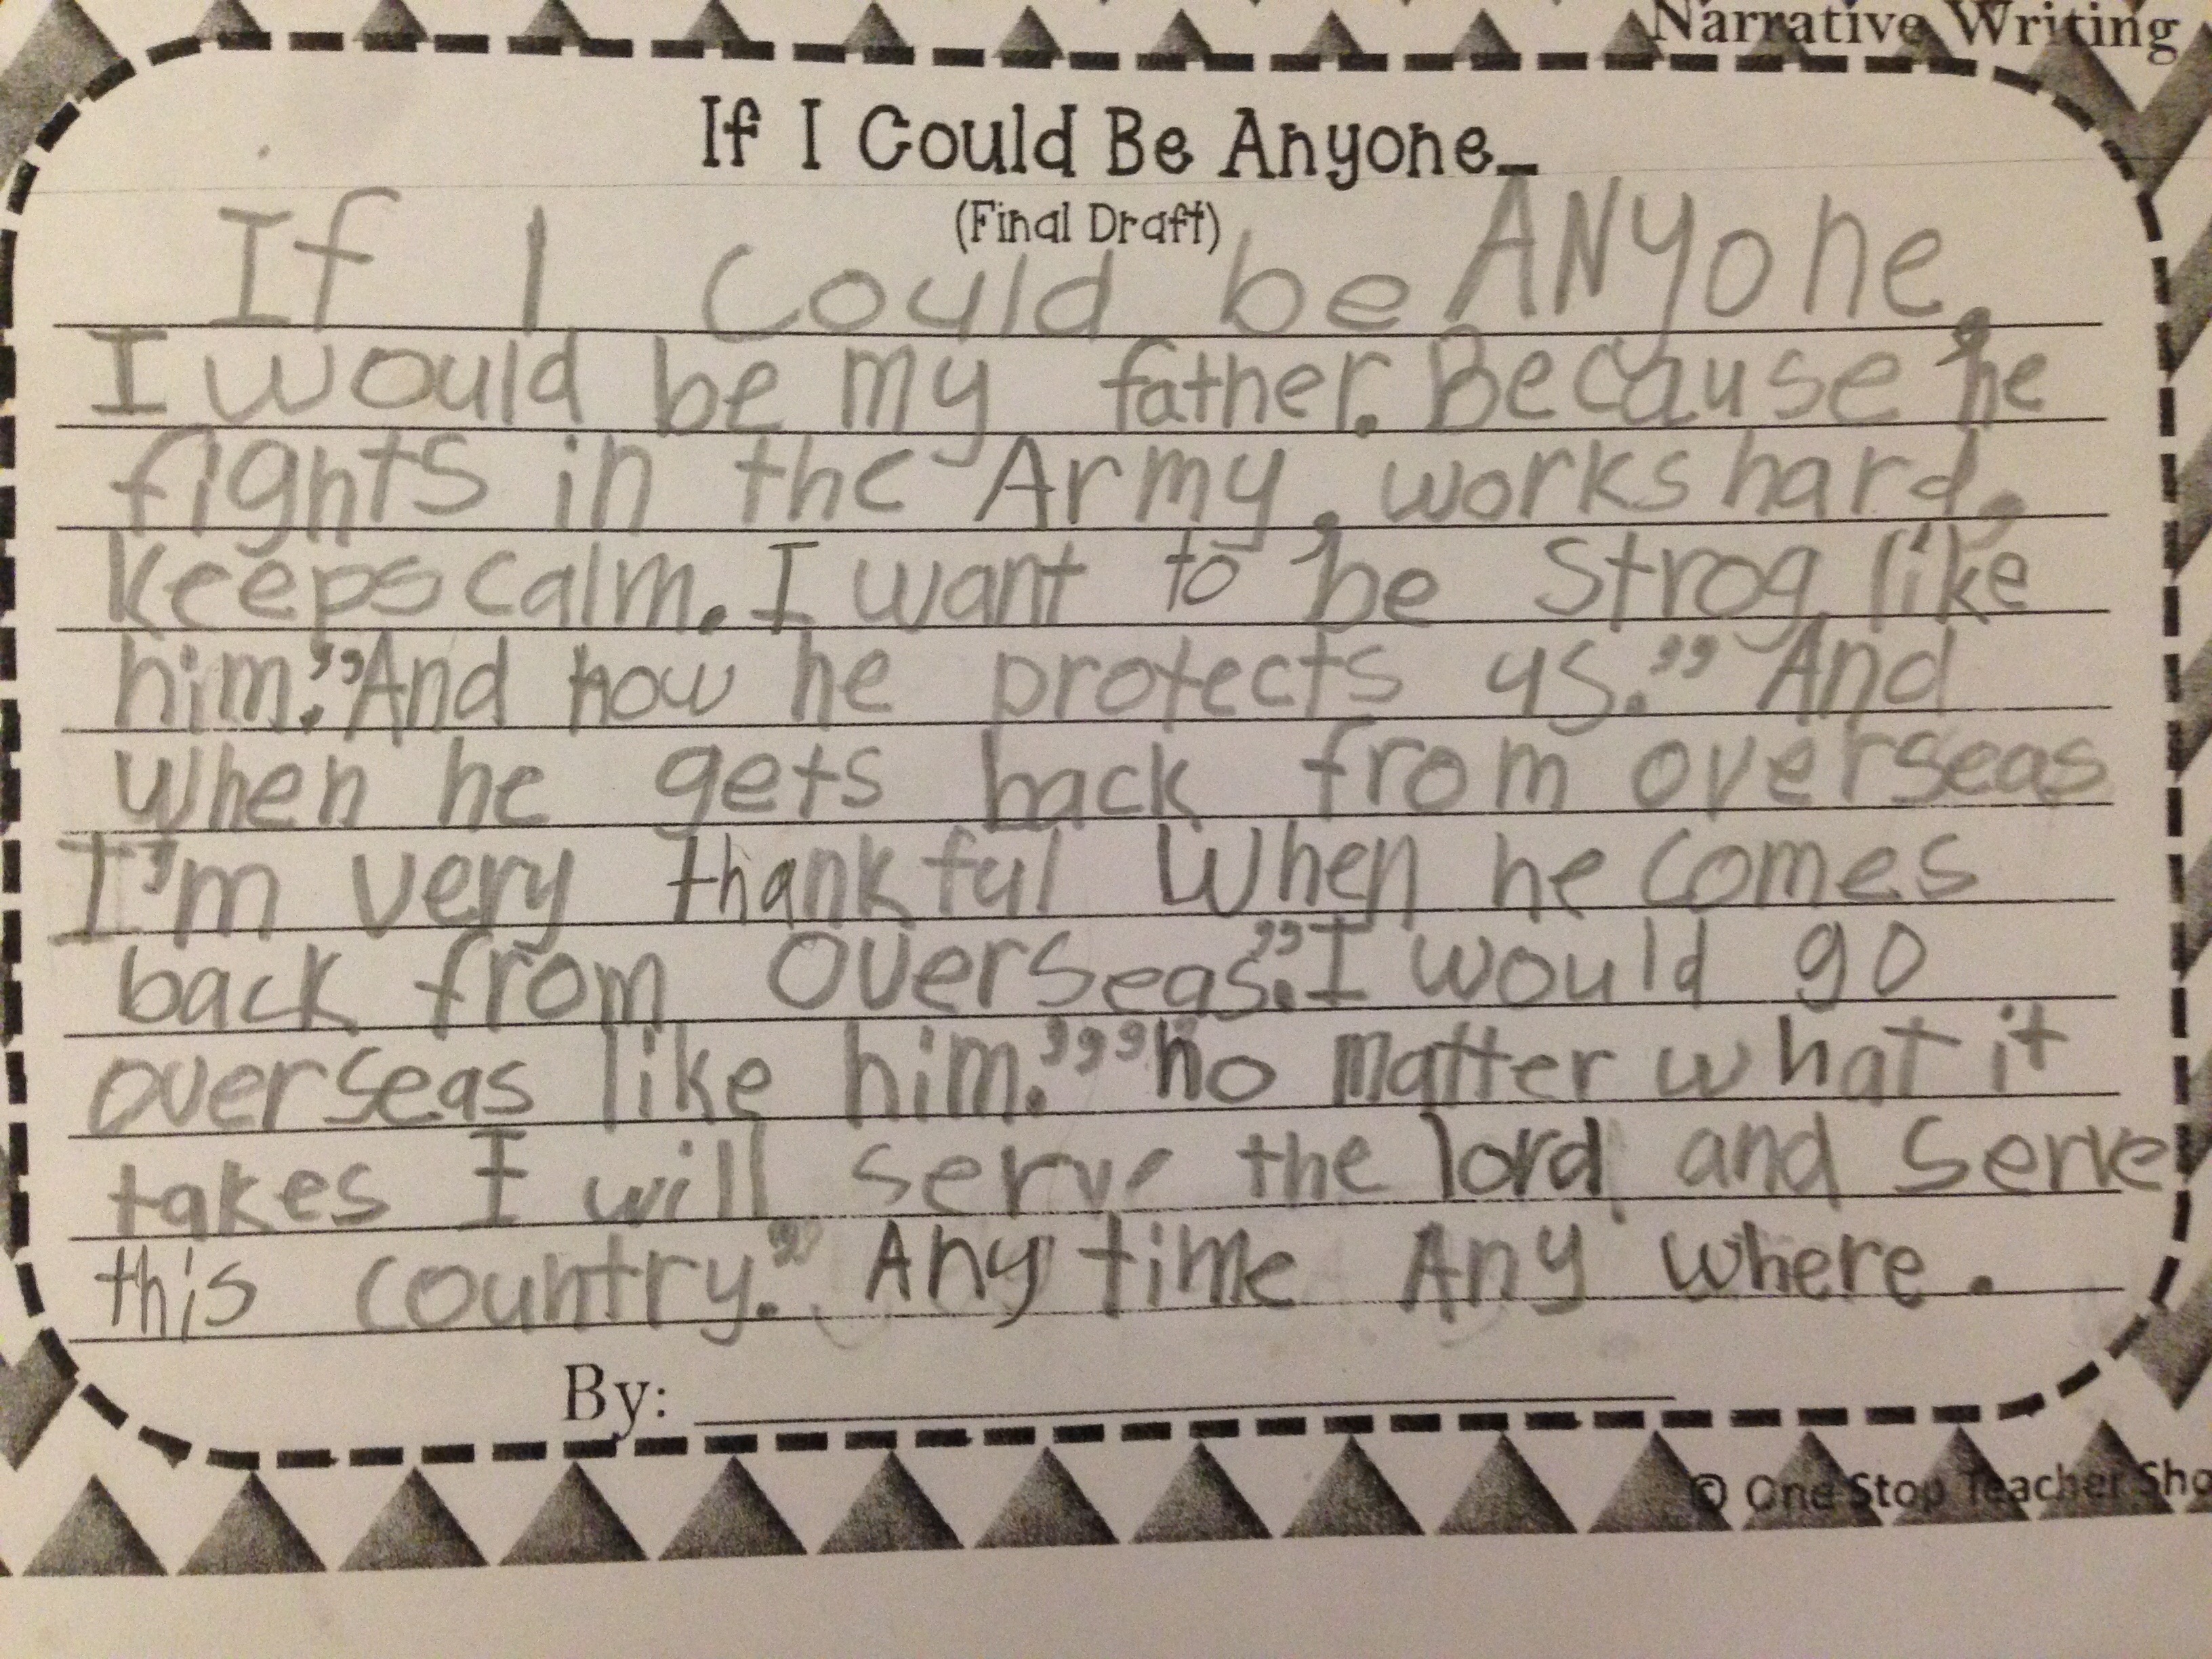 Narrative Writing
If I Could Be Anyone...
(Final Draft)
If I Could be ANyone,
I would be my father. Because he
fights in the Army, works hard,
keeps calm. I want to be Strog like
him." And how he protects us." And
when he gets back from overseas
I'm very thankful When he comes
back from overseas." I would go
overseas like him.""no matter what it
takes I will serve the lord and serve
this country." Any time Any where.
By:
© One Stop Teacher Sho